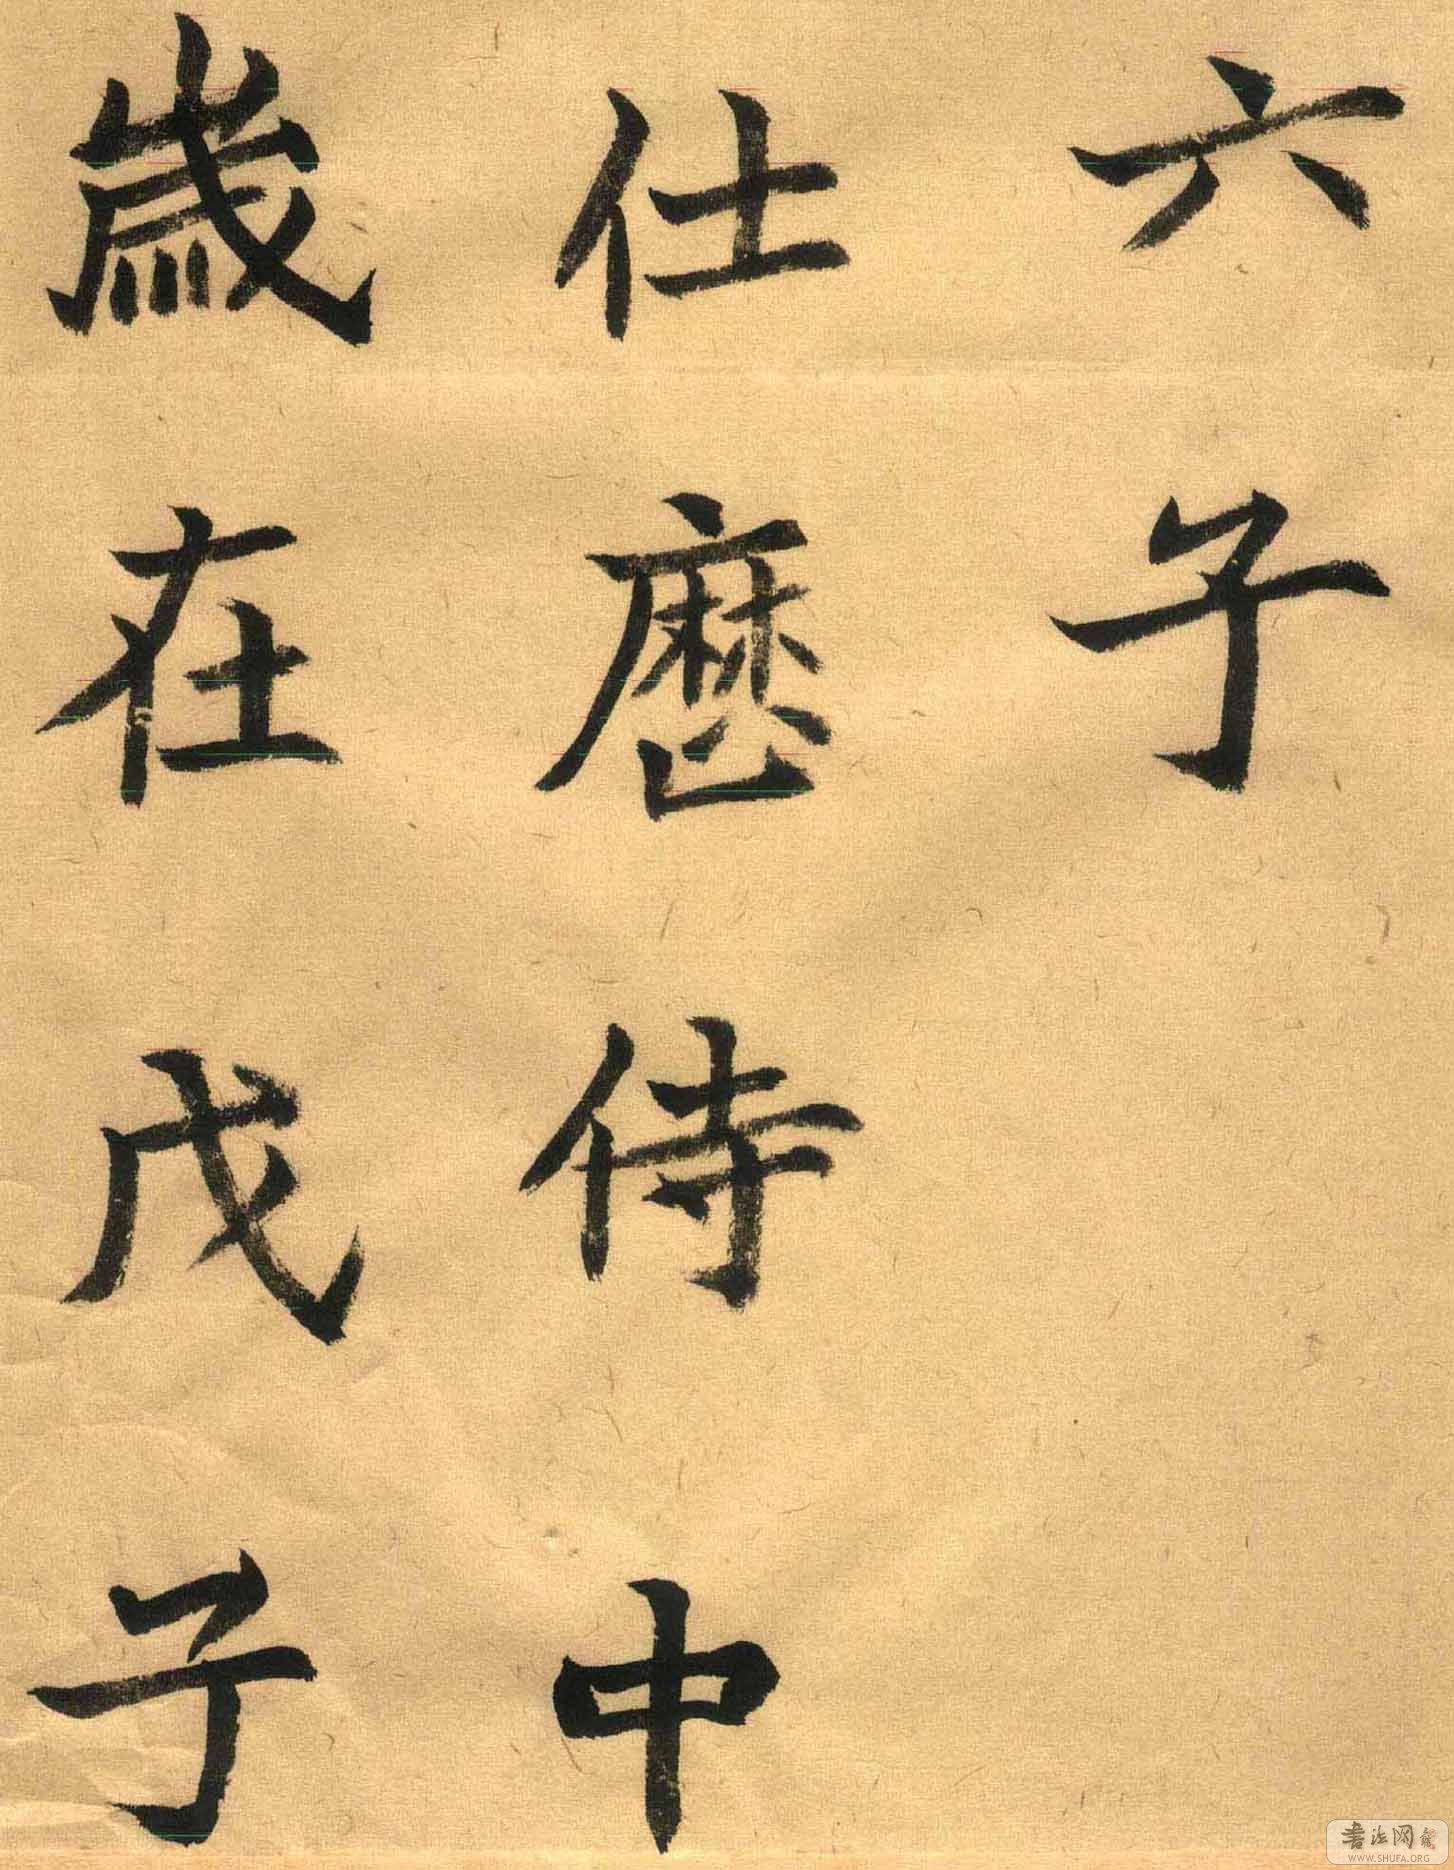 六子
仕歷侍中
歲在戊子
書法网
WWW.SHUFA.ORG